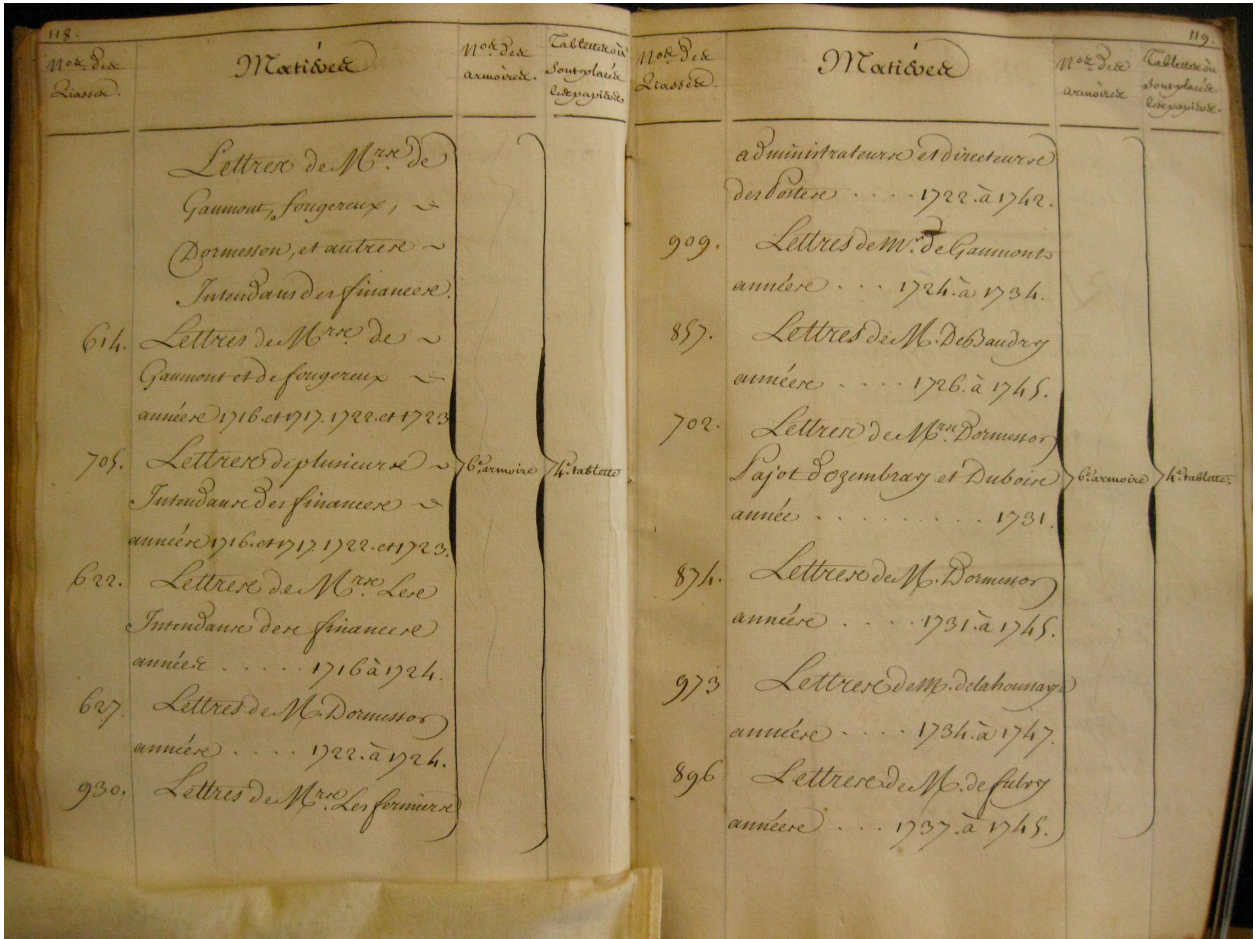 118.
Nos. Des
Liasses.
Matières
Nos. Des
armoires.
Tablettes où
sont placés
les papiers.
Lettres de Mrs. de
Gaumont, fougereux,
Dormesson, et autres
Intendans des finances.
614. Lettres de Mrs. de
Gaumont et de fougereux
années 1716. et 1717. 1722. et 1723
705. Lettres de plusieurs
Intendans des finances
années 1716. et 1717. 1722. et 1723.
6e. armoire
4e. tablette
622. Lettres de Mrs. Les
Intendans des finances
années ..... 1716 à 1724.
627. Lettres de M. Dormesson
années .... 1722. à 1724.
930. Lettres de Mrs. Les fermiers
119.
Nos. Des
Liasses.
Matières
Nos. Des
armoires
Tablettes où
sont placés
les papiers.
administrateurs et directeurs
des Postes .... 1722. à 1742.
909. Lettres de Mr. de Gaumont
années .... 1724. à 1734.
857. Lettres de M. De Baudry
années .... 1726. à 1745.
702. Lettres de Mrs. Dormesson
Pajot Dozembray et Dubois
année .......... 1731.
6e. armoire
4e. tablette.
874. Lettres de M. Dormesson
années .... 1731. à 1745.
973 Lettres de M. delahoussaye
années .... 1734. à 1747.
896 Lettres de M. de fulvy
années .... 1737. à 1745.